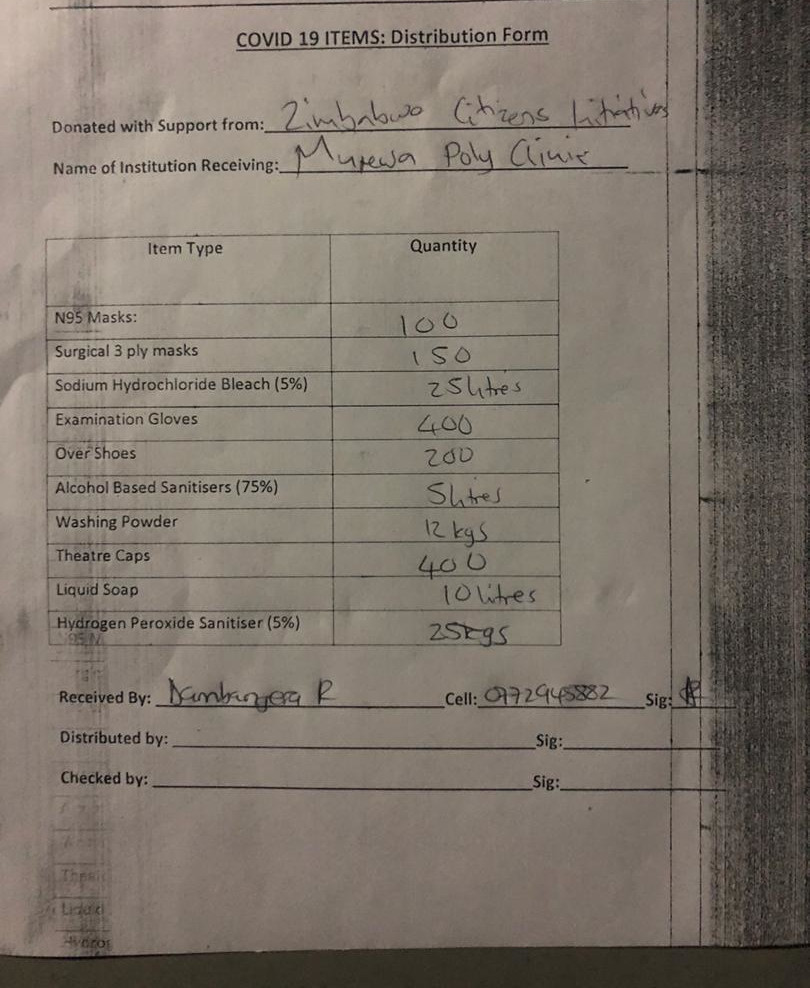 COVID 19 ITEMS: Distribution Form
Donated with Support from: Zimbabwe Citizens Initiatives
Name of Institution Receiving: Murewa Poly Clinic
Item Type Quantity
N95 Masks: 100
Surgical 3 ply masks 150
Sodium Hydrochloride Bleach (5%) 25litres
Examination Gloves 400
Over Shoes 200
Alcohol Based Sanitisers (75%) 5litres
Washing Powder 12 kgs
Theatre Caps 400
Liquid Soap 10 litres
Hydrogen Peroxide Sanitiser (5%) 25kgs
Received By: R Cell: Sig:
Distributed by: Sig:
Checked by: Sig:
Liquid